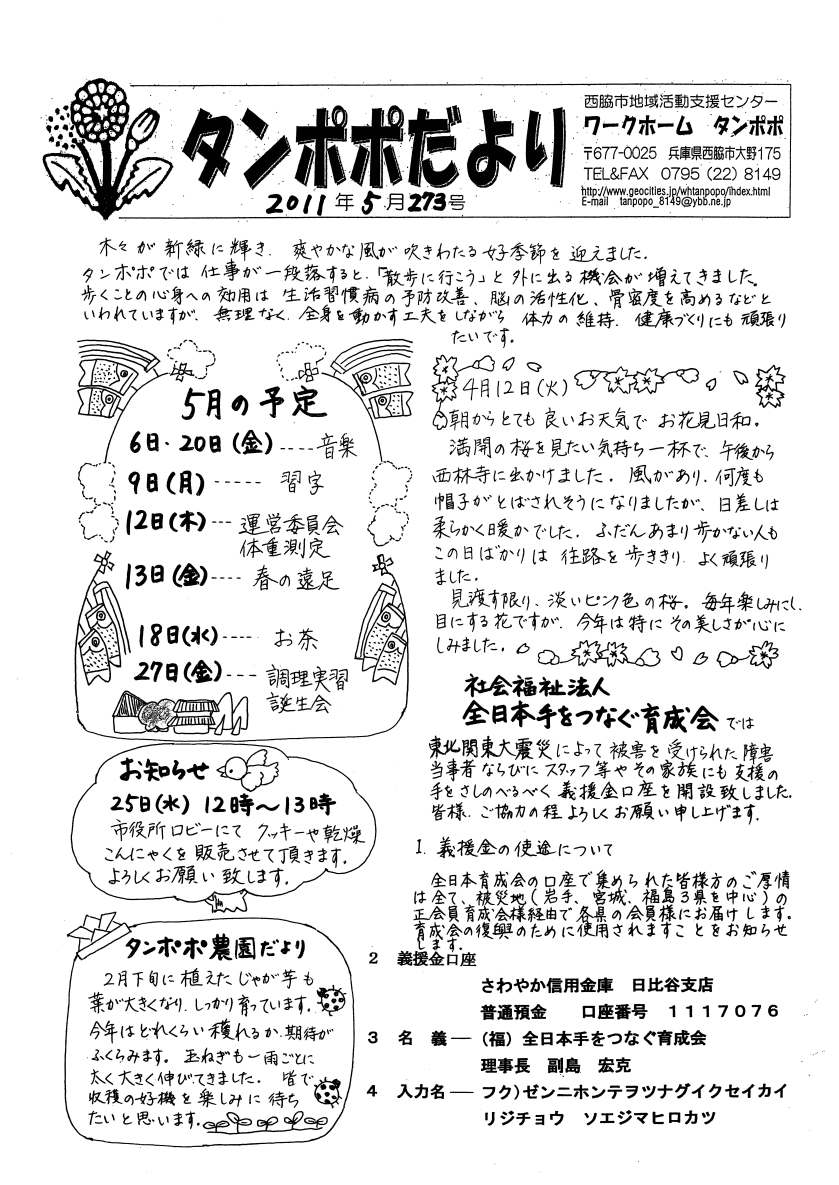 タンポポだより
2011年5月273号
西脇市地域活動支援センター
ワークホーム タンポポ
〒677-0025 兵庫県西脇市大野175
TEL&FAX 0795（22）8149
http://www.geocities.jp/whtanpopo/index.html
E-mail tanpopo_8149@ybb.ne.jp
木々が新緑に輝き、爽やかな風が吹きわたる好季節を迎えました。
タンポポでは仕事が一段落すると、「散歩に行こう」と外に出る機会が増えてきました。
歩くことの心身への効用は生活習慣病の予防改善、脳の活性化、骨密度を高めるなどと
いわれていますが、無理なく、全身を動かす工夫をしながら体力の維持、健康づくりにも頑張り
たいです。
5月の予定
6日・20日(金)----音楽
9日(月)-----習字
12日(木)---運営委員会
体重測定
13日(金)----春の遠足
18日(水)----お茶
27日(金)---調理実習
誕生会
お知らせ
25日(水) 12時〜13時
市役所ロビーにて クッキーや乾燥
こんにゃくを販売させて頂きます。
よろしくお願い致します。
タンポポ農園だより
2月下旬に植えたじゃが芋も
葉が大きくなり、しっかり育っています。
今年はどれくらい穫れるか、期待が
ふくらみます。玉ねぎも一雨ごとに
太く大きく伸びてきました。皆で
収穫の好機を楽しみに待ち
たいと思います。
4月12日(火)
朝からとても良いお天気でお花見日和。
満開の桜を見たい気持ち一杯で、午後から
西林寺に出かけました。風があり、何度も
帽子がとばされそうになりましたが、日差しは
柔らかく暖かでした。ふだんあまり歩かない人も
この日ばかりは往路を歩ききり、よく頑張り
ました。
見渡す限り、淡いピンク色の桜。毎年楽しみにし、
目にする花ですが、今年は特にその美しさが心に
しみました。
社会福祉法人
全日本手をつなぐ育成会では
東北関東大震災によって被害を受けられた障害
当事者ならびにスタッフ等やその家族にも支援の
手をさしのべるべく義援金口座を開設致しました。
皆様、ご協力の程よろしくお願い申し上げます。
1. 義援金の使途について
全日本育成会の口座で集められた皆様方のご厚情
は全て、被災地(岩手、宮城、福島3県を中心)の
正会員育成会様経由で各県の会員様にお届けします。
育成会の復興のために使用されますことをお知らせ
します。
２ 義援金口座
さわやか信用金庫 日比谷支店
普通預金 口座番号 １１１７０７６
３ 名 義 ―（福）全日本手をつなぐ育成会
理事長 副島 宏克
４ 入力名 ― フク）ゼンニホンテヲツナグイクセイカイ
リジチョウ ソエジマヒロカツ